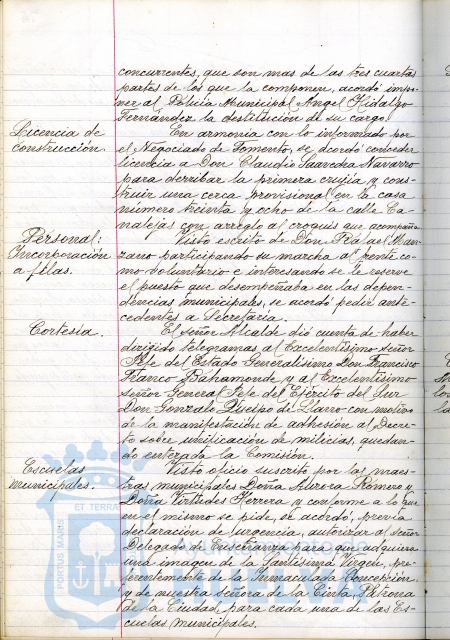 concurrentes, que son mas de las tres cuartas
partes de los que la componen, acordó impo-
ner al Policia Municipal Angel Hidalgo
Fernández la destitución de su cargo.
Licencia de
construcción.
En armonia con lo informado por
el Negociado de Fomento, se acordó conceder
licencia a Don Claudio Saavedra Navarro
para derribar la primera crujia y cons-
truir una cerca provisional en la casa
número treinta y ocho de la calle Ca-
nalejas con arreglo al croquis que acompaña.
Personal:
Incorporación
a filas.
Visto escrito de Don Rafael Man-
zano participando su marcha al frente co-
mo voluntario e interesando se le reserve
el puesto que desempeñaba en las depen-
dencias municipales, se acordó pedir ante-
cedentes a Secretaria.
Cortesia.
El señor Alcalde dió cuenta de haber
dirigido telegramas al Excelentisimo señor
Jefe del Estado Generalisimo Don Francisco
Franco Bahamonde y al Excelentisimo
señor General Jefe del Ejército del Sur
Don Gonzalo Queipo de Llano con motivo
de la manifestación de adhesión al Decre-
to sobre unificación de milicias, quedan-
do enterada la Comisión.
Escuelas
municipales.
Visto oficio suscrito por las maes-
tras municipales Doña Aurora Romero y
Doña Virtudes Herrera y conforme a lo que
en el mismo se pide, se acordó, previa
declaración de urgencia, autorizar al señor
Delegado de Enseñanza para que adquiera
una imagen de la Santisima Virgen, pre-
ferentemente de la Inmaculada Concepción
y de nuestra Señora de la Cinta, Patrona
de la Ciudad, para cada una de las Es-
cuelas municipales.
PORTUS MARIS ET TERRAE